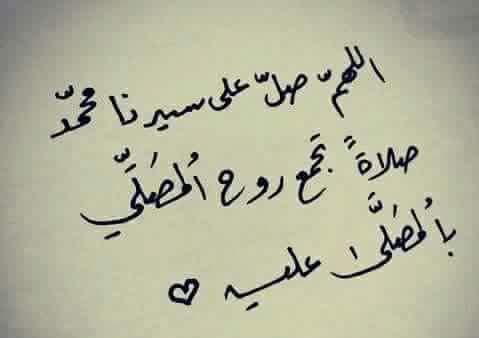 اللهمّ صلّ على سيدنا محمّد
صلاةً تجمع روح المُصَلِّي
بالمُصَلَّى عليه ♡